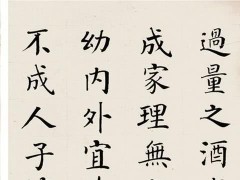 過量之酒
成家理無
幼內外宜
不成人子